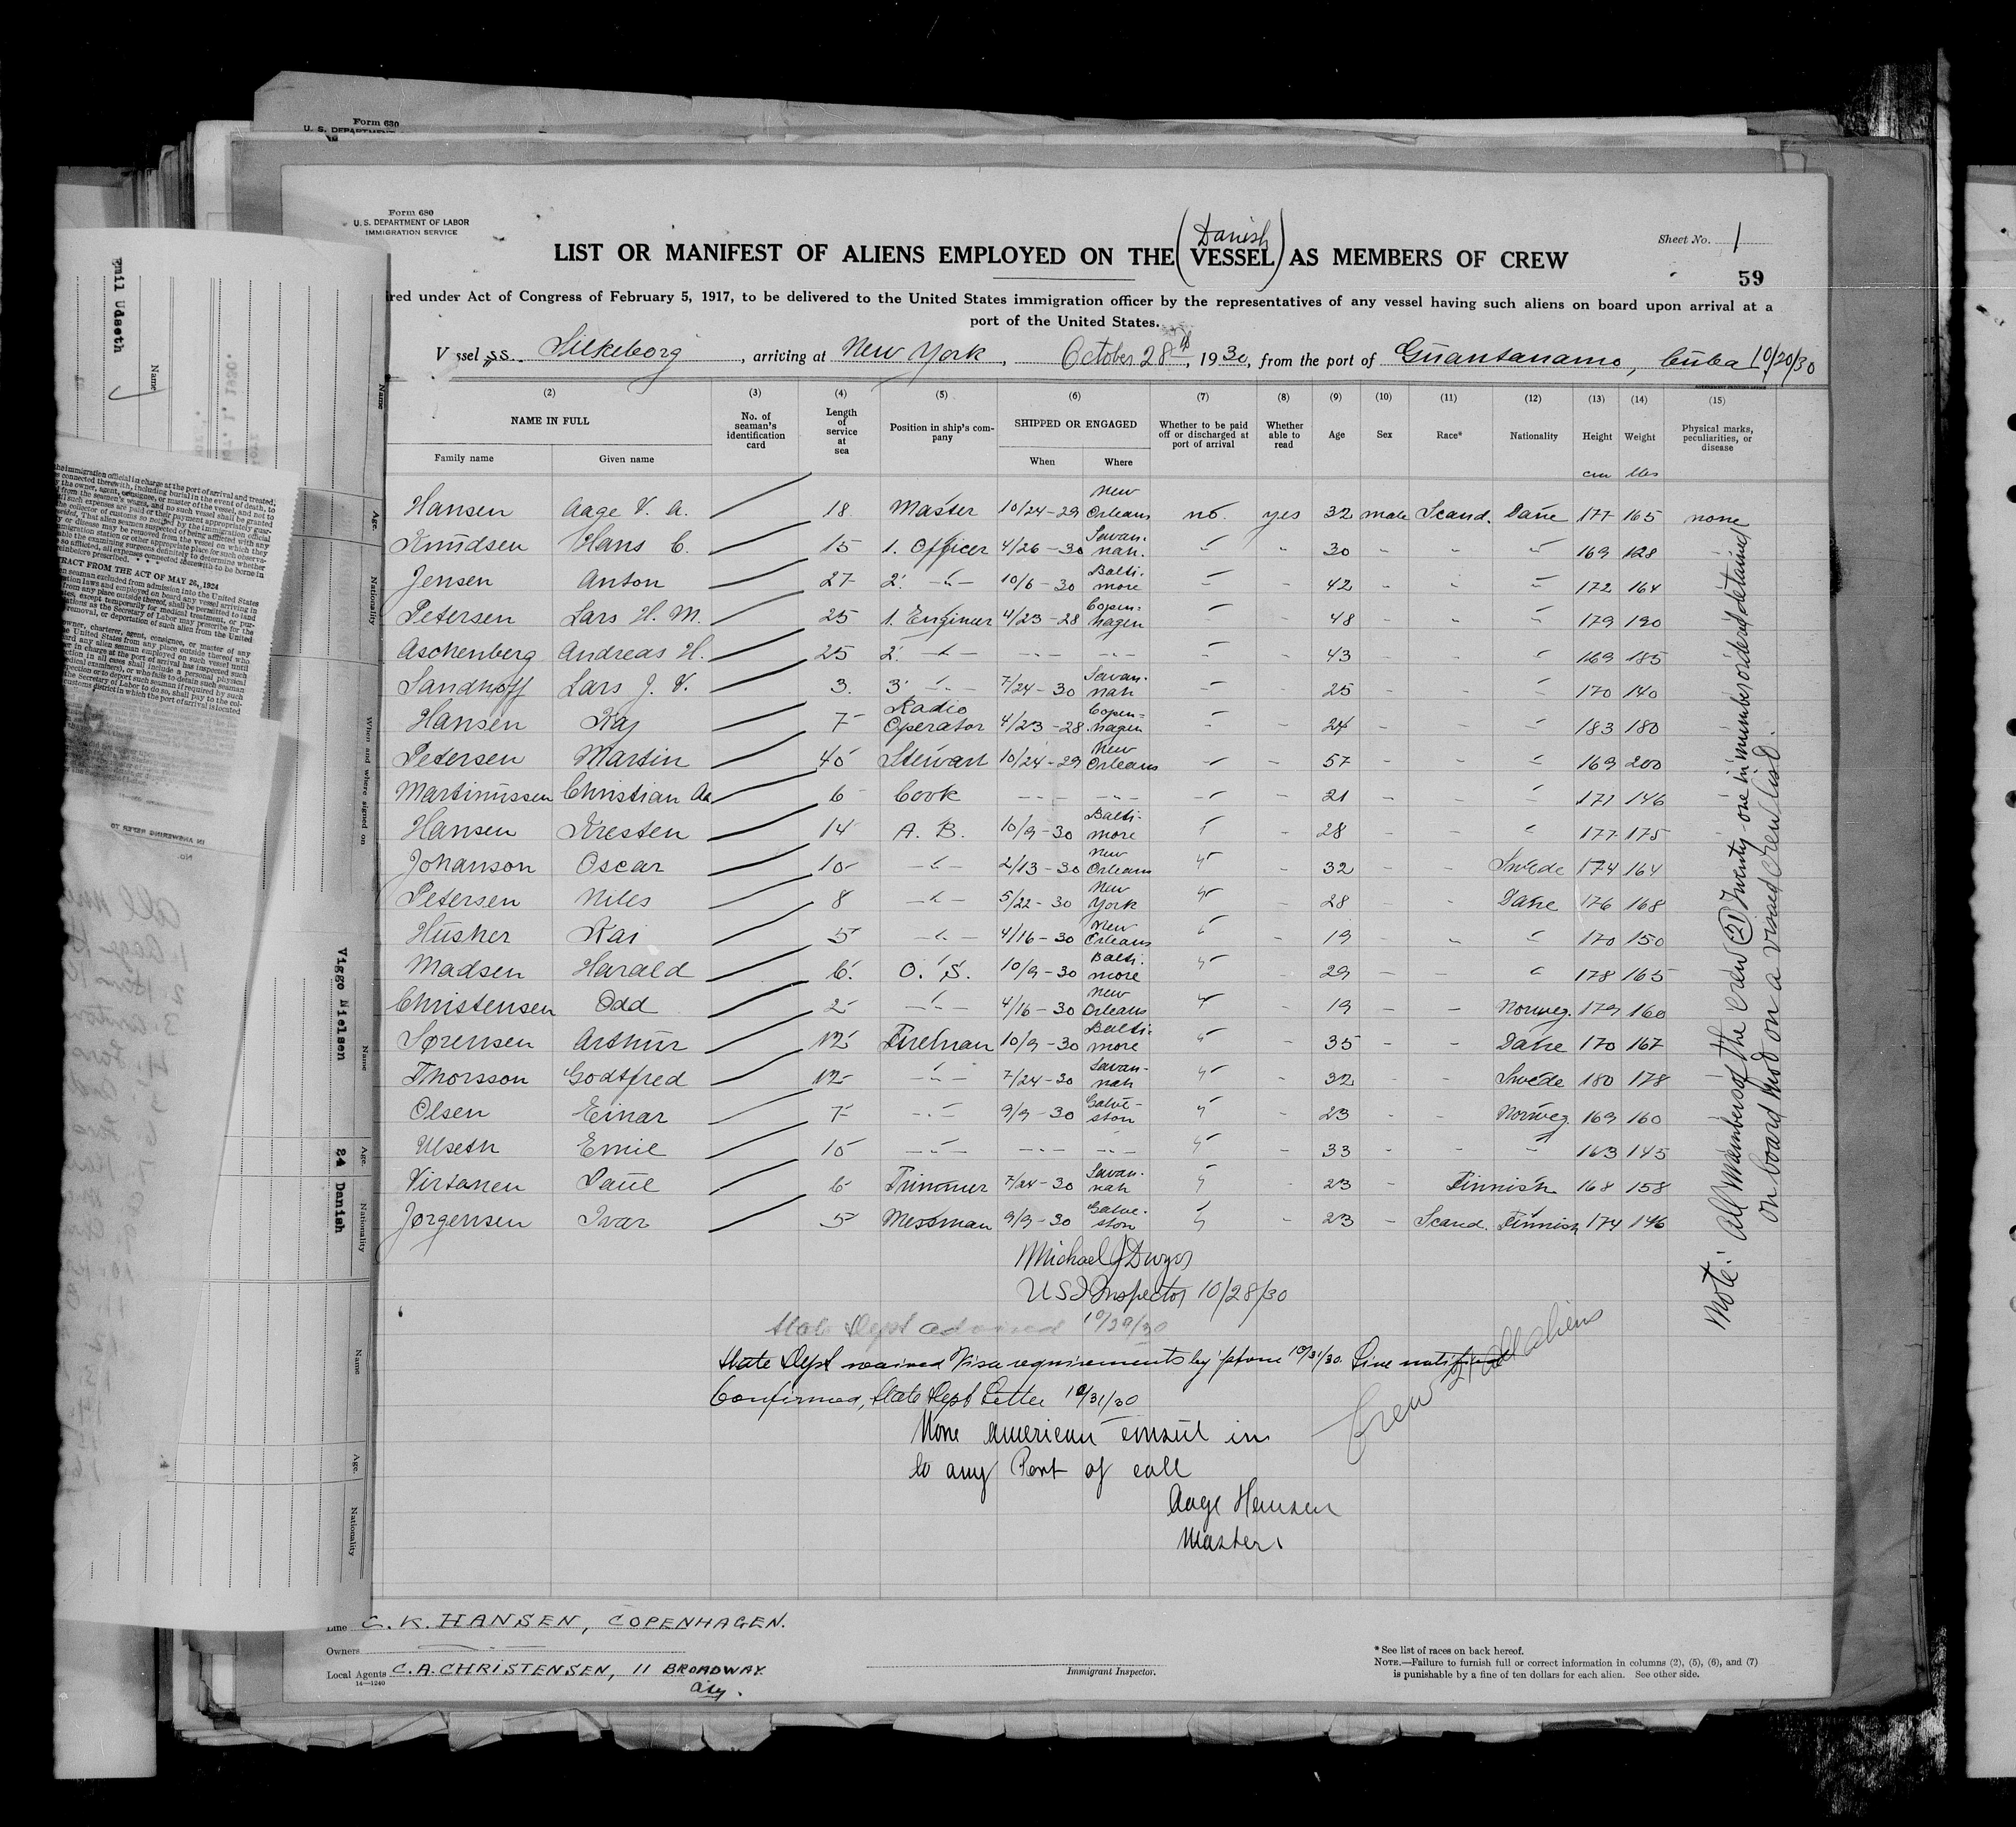 Form 630
U. S. DEPARTMENT
Form 680
U. S. DEPARTMENT OF LABOR
IMMIGRATION SERVICE
Sheet No. 1
59
LIST OR MANIFEST OF ALIENS EMPLOYED ON THE (Danish VESSEL) AS MEMBERS OF CREW
red under Act of Congress of February 5, 1917, to be delivered to the United States immigration officer by the representatives of any vessel having such aliens on board upon arrival at a
port of the United States.
Vessel S.S. Silkeborg, arriving at New York, October 28th, 1930, from the port of Guantanamo, Cuba 10/20/30
(2) (3) (4) (5) (6) (7) (8) (9) (10) (11) (12) (13) (14) (15)
NAME IN FULL No. of seaman's identification card Length of service at sea Position in ship's company SHIPPED OR ENGAGED Whether to be paid off or discharged at port of arrival Whether able to read Age Sex Race* Nationality Height Weight Physical marks, peculiarities, or disease
Family name Given name When Where cm lbs
Hansen Aage V. A. 18 Master 10/24-29 New Orleans no. yes 32 male Scand. Dane 177 165 none
Knudsen Hans C. 15 1. Officer 4/26-30 Savannah. " - 30 - " " 169 128
Jensen Anton 27 2. -"- 10/6-30 Baltimore " - 42 - " " 172 164
Petersen Lars H. M. 25 1. Engineer 4/23-28 Copenhagen " - 48 - " " 179 190
Aschenberg Andreas H. 25 2. -"- -"- -"- " - 43 - - " 169 185
Sandhoff Lars J. V. 3. 3. -"- 7/24-30 Savannah " - 25 - - " 170 140
Hansen Kaj 7 Radio Operator 4/23-28 Copenhagen " - 24 - - " 183 180
Petersen Martin 40 Stewart 10/24-29 New Orleans " - 57 - - " 169 200
Martinussen Christian Aa 6 Cook -"- -"- " - 21 - - " 171 146
Hansen Kresten 14 A. B. 10/9-30 Baltimore " - 28 - - " 177 175
Johanson Oscar 10 -"- 2/13-30 New Orleans " - 32 - - Swede 174 164
Petersen Niles 8 -"- 5/22-30 New York " - 28 - - Dane 176 168
Husher Kai 5 -"- 4/16-30 New Orleans " - 19 - " " 170 150
Madsen Harald 6. O. S. 10/9-30 Baltimore " - 29 - - " 178 165
Christensen Odd 2 -"- 4/16-30 New Orleans " - 19 - - Norweg. 179 160
Sørensen Arthur 12 Fireman 10/9-30 Baltimore " - 35 - - Dane 170 167
Thorsson Godtfred 12 -"- 7/24-30 Savannah " - 32 - - Swede 180 178
Olsen Einar 7 -"- 9/9-30 Galveston " - 23 - - Norweg. 169 160
Ulseth Emil 10 -"- -"- -"- " - 33 - - " 163 145
Virtanen Paul 6 Trimmer 7/24-30 Savannah " - 23 - Finnish 168 158
Jørgensen Ivar 5 Messman 9/9-30 Galveston " - 23 - Scand. Finnish 174 146
Michael J Dwyer
U S Inspector 10/28/30
State Dept advised 10/29/30
State Dept waived Visa requirements by phone 10/31/30. Line notified
Confirmed, State Dept Letter 10/31/30
Crew 21 All aliens
None american consul in
to any Port of call
Aage Hansen
Master.
Note: All members of the crew (21) Twenty-one in number ordered detained
on board not on a visaed crew list.
Line C. K. HANSEN, COPENHAGEN.
Owners
Local Agents C. A. CHRISTENSEN, 11 BROADWAY.
City.
14—1240
Immigrant Inspector.
* See list of races on back hereof.
NOTE.—Failure to furnish full or correct information in columns (2), (5), (6), and (7)
is punishable by a fine of ten dollars for each alien. See other side.
Name
Age.
Nationality
When and where signed on
Viggo Nielsen
Name
24 Danish
Age.
Nationality
Name
Age.
Nationality
Name
EXTRACT FROM THE ACT OF MAY 26, 1924